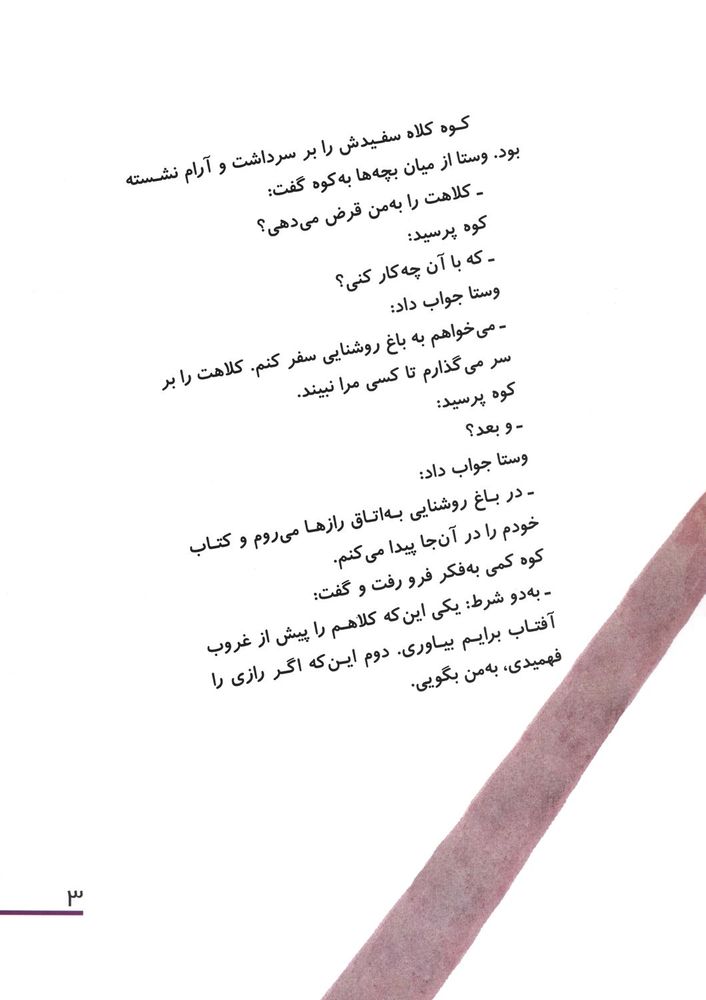 کوه کلاه سفیدش را بر سرداشت و آرام نشسته
بود. وستا از میان بچه‌ها به‌کوه گفت:
ـ کلاهت را به‌من قرض می‌دهی؟
کوه پرسید:
ـ که با آن چه‌کار کنی؟
وستا جواب داد:
ـ می‌خواهم به باغ روشنایی سفر کنم. کلاهت را بر
سر می‌گذارم تا کسی مرا نبیند.
کوه پرسید:
ـ و بعد؟
وستا جواب داد:
ـ در باغ روشنایی به‌اتاق رازها می‌روم و کتاب
خودم را در آن‌جا پیدا می‌کنم.
کوه کمی به‌فکر فرو رفت و گفت:
ـ به‌دو شرط: یکی این‌که کلاهم را پیش از غروب
آفتاب برایم بیاوری. دوم این‌که اگر رازی را
فهمیدی، به‌من بگویی.
۳